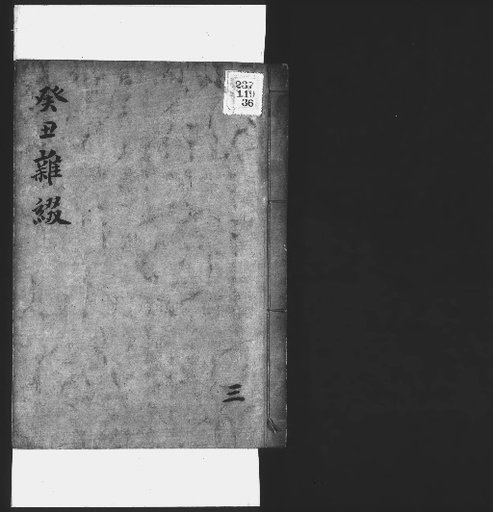 癸丑雜綴
三
237
119
36